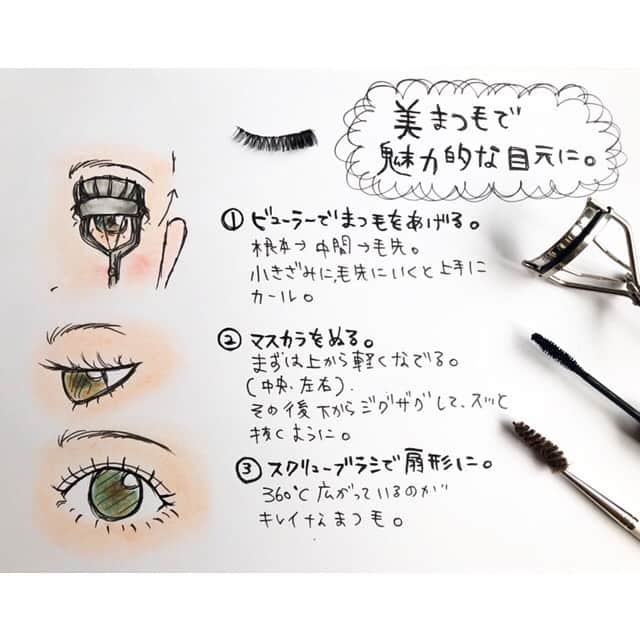 美まつ毛で
魅力的な目元に。
① ビューラーでまつ毛をあげる。
根本→中間→毛先。
小きざみに、毛先にいくと上手に
カール。
② マスカラをぬる。
まずは上から軽くなでる。
(中央、左右).
その後下からジグザグして、スッと
抜くように。
③ スクリューブラシで扇形に。
360℃広がっているのが
キレイなまつ毛。